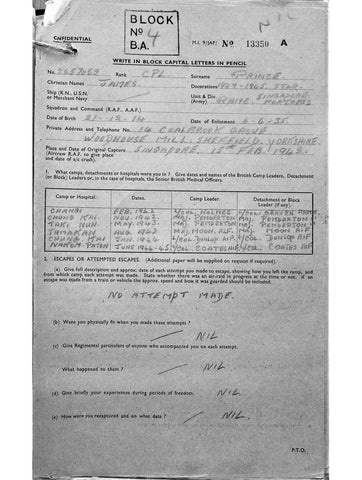 NIL
BLOCK
No
4
B.A.
CONFIDENTIAL
M.I. 9/JAP/ No 13350 A
WRITE IN BLOCK CAPITAL LETTERS IN PENCIL
No. Rank CPL Surname PRINCE
Christian Names JAMES. Decorations 1939-1945 STAR.
Ship (R.N., U.S.N. or Merchant Navy Unit & Div. (Army) SINGAPORE FORTRESS
Squadron (R.A.F., A.A.F.)
Date of Birth 21-12-14 Date of Enlistment 6-6-35
Private Address and Telephone No. 14 COALBROOK GROVE
WOODHOUSE MILL, SHEFFIELD, YORKSHIRE.
Place and Date of Original Capture SINGAPORE, 15TH FEB. 1942.
(Aircrew R.A.F. to give place and date of a/c crash).
1. What camps, detachments or hospitals were you in? Give dates and names of the British Camp Leaders, Detachment (or Block) Leaders or, in the case of hospitals, the Senior British Medical Officers.
Camp or Hospital. Date. Camp Leader: Detachment or Block Leader (if any).
CHANGI FEB. 1942 L/COL. HOLMES L/COL.
CHUNG KAI. NOV. 1942. MAJ. PEMBERTON MAJ. PEMBERTON
TAKI NUN MAJ. PEMBERTON MAJ. PEMBERTON
TAMAKAN AUG 1943 MAJ. MOON A.I.F. MAJ. MOON A.I.F
CHUNG KAI JAN. 1944 L/COL. DUNLOP A.I.F. L/COL. DUNLOP A.I.F
NAKOM PATAN JUNE 1944-45 L/COL. COATES A.I.F. L/COL. COATES A.I.F
2. ESCAPES OR ATTEMPTED ESCAPES. (Additional paper will be supplied on request if required).
(a) Give full description and approx. date of each attempt you made to escape, showing how you left the camp, and from which camp each attempt was made. State whether there was an air-raid in progress at the time or not. If an escape was made from a train or vehicle the approx. speed and how it was guarded should be included.
NO ATTEMPT MADE.
(b) Were you physically fit when you made these attempts?
NIL
(c) Give Regimental particulars of anyone who accompanied you on each attempt.
What happened to them? NIL
(d) Give briefly your experiences during periods of freedom. NIL.
(e) How were you recaptured and on what date? NIL.
P.T.O.